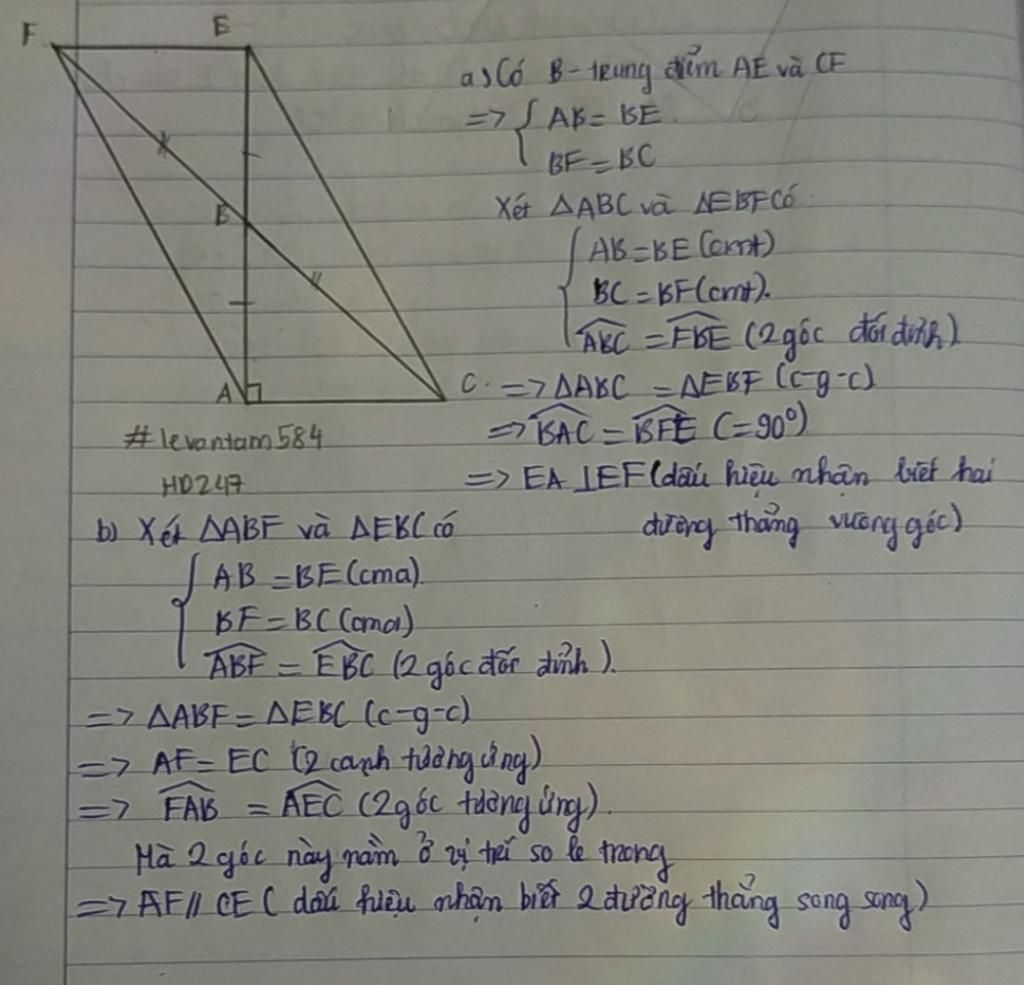 F E
B
A C
a) Có B-trung điểm AE và CF
=> { AB = BE
BF = BC
Xét ΔABC và ΔEBF có
{ AB = BE (cmt)
BC = BF (cmt).
\widehat{ABC} = \widehat{FBE} (2 góc đối đỉnh)
=> ΔABC = ΔEBF (c-g-c)
=> \widehat{BAC} = \widehat{BFE} (=90°)
=> EA ⊥ EF (dấu hiệu nhận biết hai
đường thẳng vuông góc)
#levantam584
HD247
b) Xét ΔABF và ΔEBC có
{ AB = BE (cma).
BF = BC (cma)
\widehat{ABF} = \widehat{EBC} (2 góc đối đỉnh).
=> ΔABF = ΔEBC (c-g-c)
=> AF = EC (2 cạnh tương ứng)
=> \widehat{FAB} = \widehat{AEC} (2 góc tương ứng).
Mà 2 góc này nằm ở vị trí so le trong
=> AF // CE ( dấu hiệu nhận biết 2 đường thẳng song song)